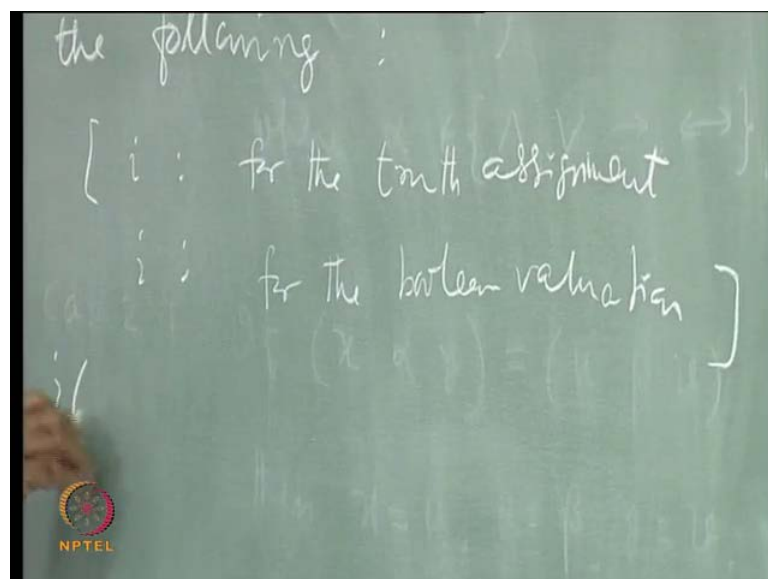 the following :
[ i : for the truth assignment
i : for the boolean valuation ]
i(
NPTEL